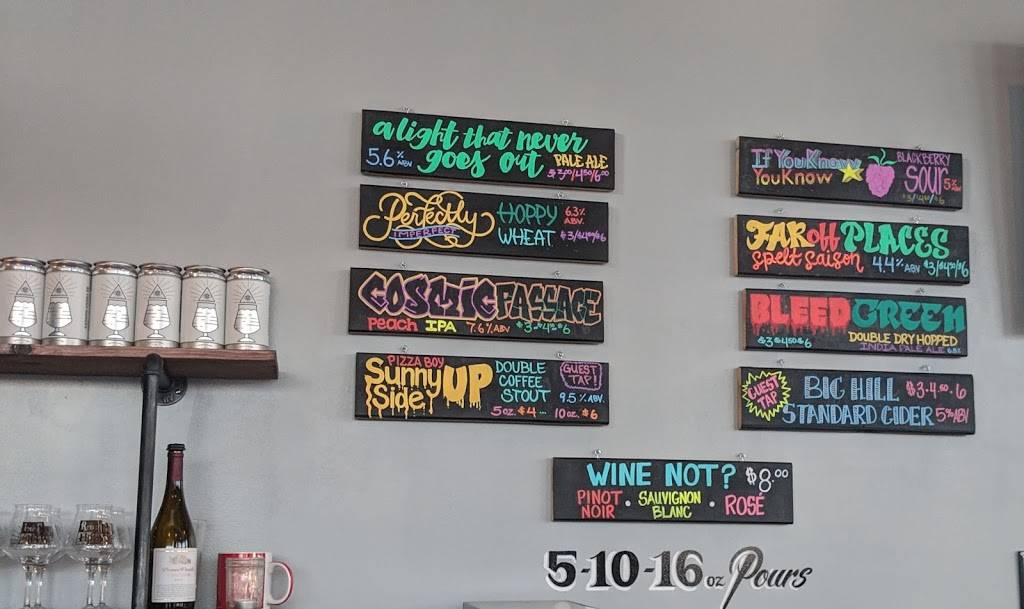 a light that never
goes out
5.6% ABV
PALE ALE
$3.00/4.50/6.00
Perfectly
IMPERFECT
HOPPY
WHEAT
6.3%
ABV.
COSMIC PASSAGE
Peach IPA 7.6% ABV
PIZZA BOY
Sunny
Side UP
DOUBLE
COFFEE
STOUT
GUEST
TAP!
9.5% ABV.
5oz. $4 ... 10oz. $6
If You Know
You Know
BLACKBERRY
SOUR
5% ABV
FAR off PLACES
Spelt Saison 4.4% ABV
BLEED GREEN
$3 $4.50 $6
DOUBLE DRY HOPPED
INDIA PALE ALE
GUEST
TAP
BIG HILL $3-4.50-6
STANDARD CIDER 5% ABV
WINE NOT? $8.00
PINOT
NOIR • SAUVIGNON
BLANC • ROSÉ
5-10-16 oz Pours